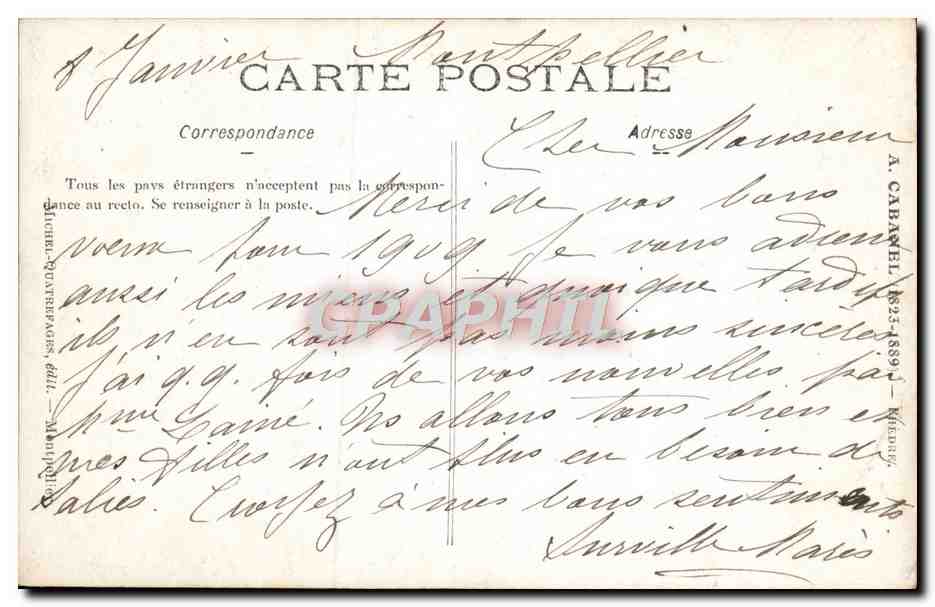 8 Janvier Montpellier
CARTE POSTALE
Correspondance
Adresse
Cher Monsieur
Tous les pays étrangers n'acceptent pas la correspon-
dance au recto. Se renseigner à la poste.
Merci de vos bons
voeux pour 1909 Je vous adresse
aussi les miens et quoique tardifs
ils n'en sont pas moins sincères
J'ai q.q. fois de vos nouvelles par
Mme Lainé. Ns allons tous bien et
mes filles n'ont plus eu besoin de
Salies. Croyez à mes bons sentiments
Surville Marès
MICHEL-QUATREFAGES, édit. — Montpellier
A. CABANEL (1823-1889) — PHÈDRE
CPAPHIL